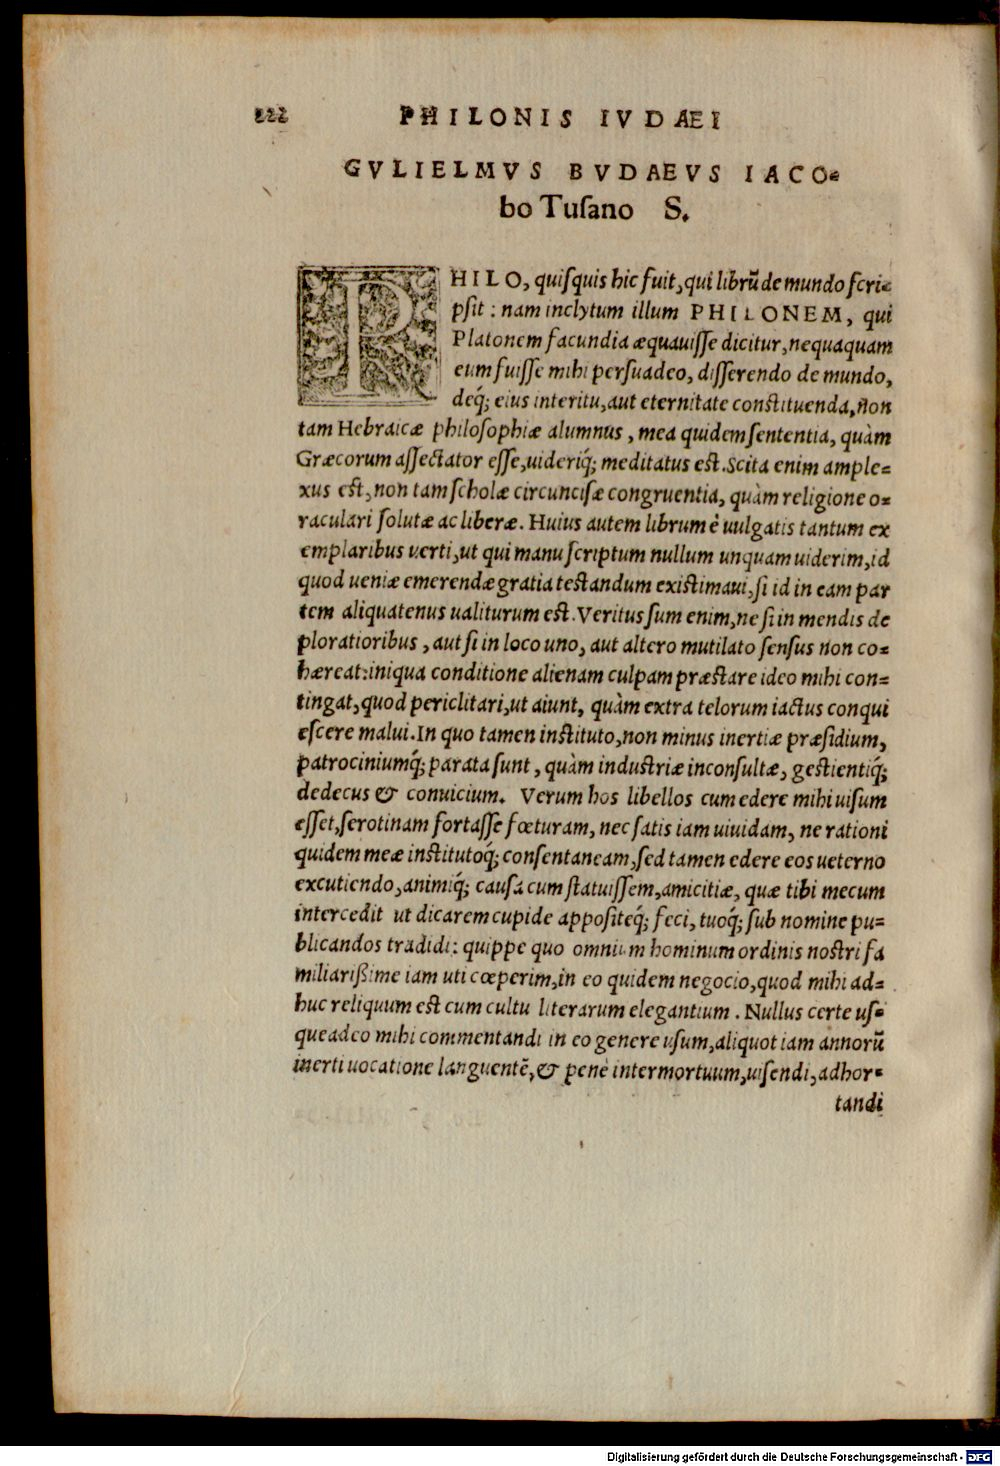 222 PHILONIS IVDAEI
GVLIELMVS BVDAEVS IACO=
bo Tuſano S.
PHILO, quiſquis hic fuit, qui librũ de mundo ſcri=
pſit : nam inclytum illum PHILONEM, qui
Platonem facundia æquauiſſe dicitur, nequaquam
eum fuiſſe mihi perſuadeo, diſſerendo de mundo,
deq́; eius interitu, aut eternitate conſtituenda, non
tam Hebraicæ philoſophiæ alumnus, mea quidem ſententia, quàm
Græcorum aſſectator eſſe, uideriq́; meditatus eſt. Scita enim ample=
xus eſt, non tam ſcholæ circunciſæ congruentia, quàm religione o=
raculari ſolutæ ac liberæ. Huius autem librum è uulgatis tantum ex
emplaribus verti, ut qui manu ſcriptum nullum unquam uiderim, id
quod ueniæ emerendæ gratia teſtandum exiſtimaui, ſi id in eam par
tem aliquatenus ualiturum eſt. Veritus ſum enim, ne ſi in mendis de
ploratioribus, aut ſi in loco uno, aut altero mutilato ſenſus non co=
hæreat: iniqua conditione alienam culpam præſtare ideo mihi con=
tingat, quod periclitari, ut aiunt, quàm extra telorum iactus conqui
eſcere malui. In quo tamen inſtituto, non minus inertiæ præſidium,
patrociniumq́; parata ſunt, quàm induſtriæ inconſultæ, geſtientiq́;
dedecus & conuicium. Verum hos libellos cum edere mihi uiſum
eſſet, ſerotinam fortaſſe fœturam, nec ſatis iam uiuidam, ne rationi
quidem meæ inſtitutoq́; conſentaneam, ſed tamen edere eos ueterno
excutiendo, animiq́; cauſa cum ſtatuiſſem, amicitiæ, quæ tibi mecum
intercedit ut dicarem cupide appoſiteq́; feci, tuoq́; ſub nomine pu=
blicandos tradidi: quippe quo omnium hominum ordinis noſtri fa
miliarißime iam uti cœperim, in eo quidem negocio, quod mihi ad=
huc reliquum eſt cum cultu literarum elegantium. Nullus certe uſ=
que adeo mihi commentandi in eo genere uſum, aliquot iam annorũ
inerti uocatione languentẽ, & penè intermortuum, uiſendi, adhor=
tandi
Digitalisierung gefördert durch die Deutsche Forschungsgemeinschaft - DFG